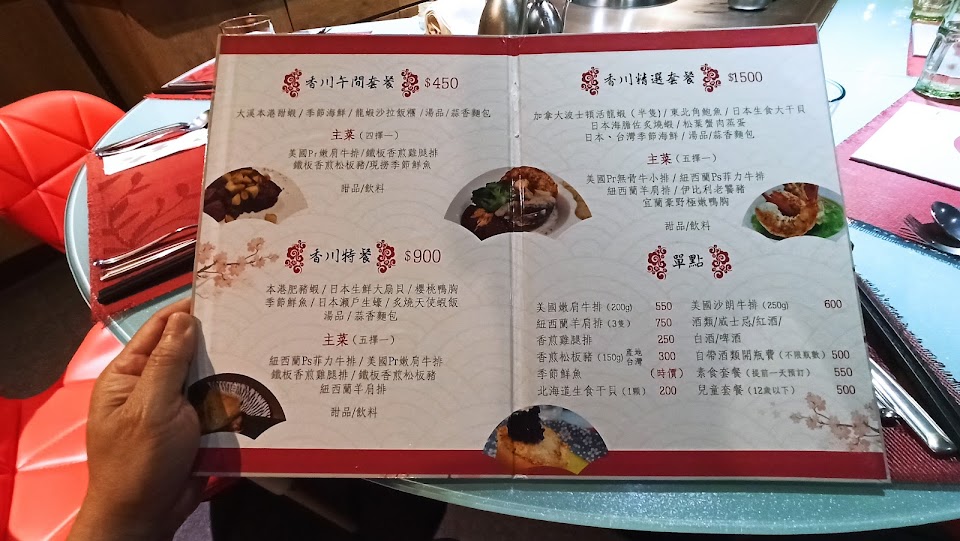 香川午間套餐 $450
大溪本港甜蝦/季節海鮮/龍蝦沙拉飯糰/湯品/蒜香麵包
主菜(四擇一)
美國Pr嫩肩牛排/鐵板香煎雞腿排
鐵板香煎松板豬/現撈季節鮮魚
甜品/飲料
香川特餐 $900
本港肥豬蝦/日本生鮮大扇貝/櫻桃鴨胸
季節鮮魚/日本瀨戶生蠔/炙燒天使蝦飯
湯品/蒜香麵包
主菜(五擇一)
紐西蘭Ps菲力牛排/美國Pr嫩肩牛排
鐵板香煎雞腿排/鐵板香煎松板豬
紐西蘭羊肩排
甜品/飲料
香川精選套餐 $1500
加拿大波士頓活龍蝦(半隻)/東北角鮑魚/日本生食大干貝
日本海膽佐炙燒蝦/松葉蟹肉蒸蛋
日本、台灣季節海鮮/湯品/蒜香麵包
主菜(五擇一)
美國Pr無骨牛小排/紐西蘭Ps菲力牛排
紐西蘭羊肩排/伊比利老饕豬
宜蘭豪野極嫩鴨胸
甜品/飲料
單點
美國嫩肩牛排(200g) 550
紐西蘭羊肩排(3隻) 750
香煎雞腿排 250
香煎松板豬(150g)產地台灣 300
季節鮮魚 (時價)
北海道生食干貝(1顆) 200
美國沙朗牛排(250g) 600
酒類/威士忌/紅酒/
白酒/啤酒
自帶酒類開瓶費(不限瓶數) 500
素食套餐(提前一天預訂) 550
兒童套餐(12歲以下) 500